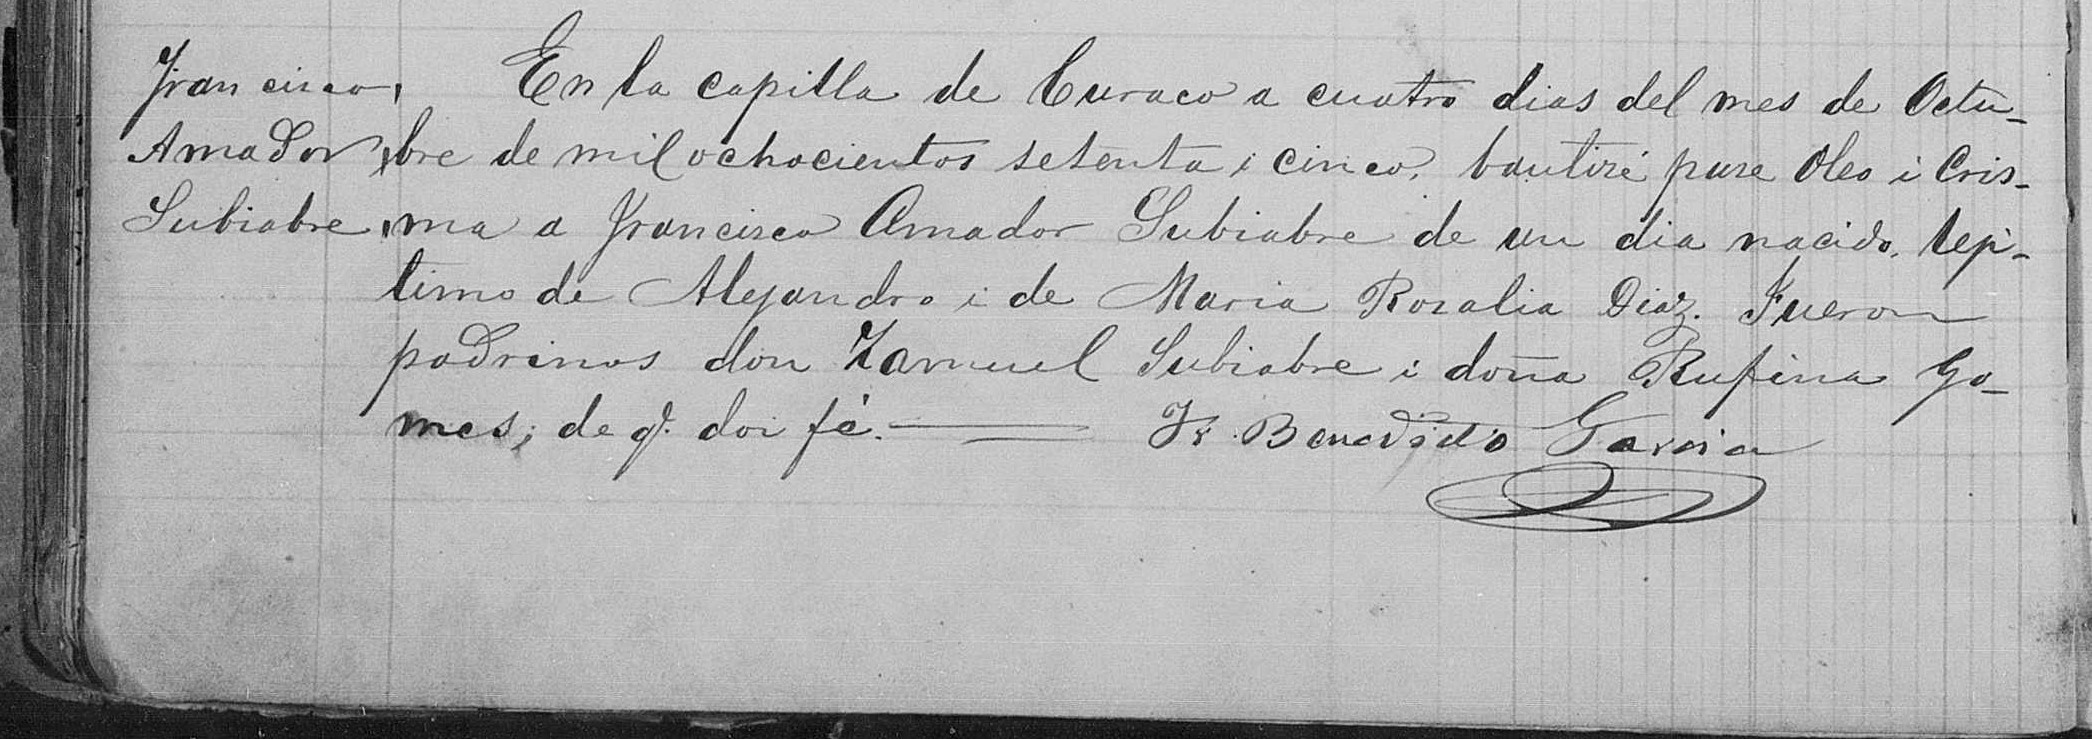 Francisco
Amador
Subiabre
En la capilla de Curaco a cuatro dias del mes de Octu-
bre de mil ochocientos setenta i cinco, bautizé puse Oleo i Cris-
ma a Francisco Amador Subiabre de un dia nacido, lejí-
timo de Alejandro i de Maria Rozalia Diaz. Fueron
padrinos don Zamuel Subiabre i doña Rufina Go-
mes; de q.e doi fé. Fr. Benedicto Garcia